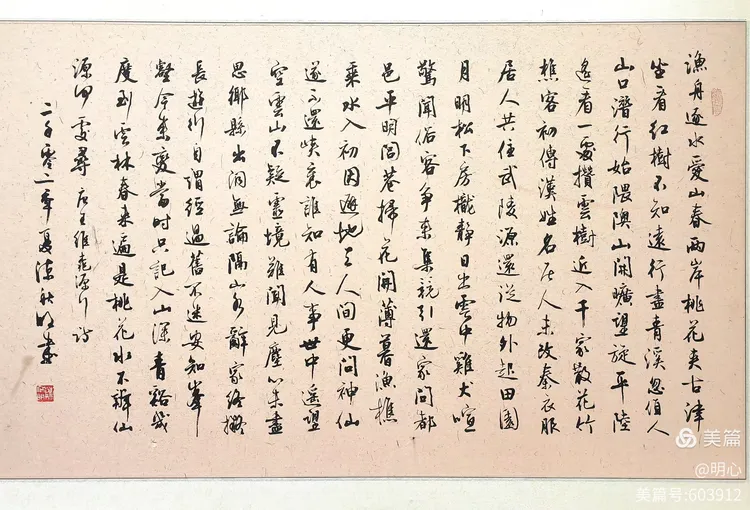 漁舟逐水愛山春兩岸桃花夾古津
坐看紅樹不知遠行盡青溪忽值人
山口潛行始隈隩山開曠望旋平陸
遙看一處攢雲樹近入千家散花竹
樵客初傳漢姓名居人未改秦衣服
居人共住武陵源還從物外起田園
月明松下房櫳靜日出雲中雞犬喧
驚聞俗客爭來集競引還家問都
邑平明閭巷掃花開薄暮漁樵
乘水入初因避地去人間更問神仙
遂不還峽裏誰知有人事世中遙望
空雲山不疑靈境難聞見塵心未盡
思鄉縣出洞無論隔山水辭家終擬
長遊衍自謂經過舊不迷安知峯
壑今來變當時只記入山深青谿幾
度到雲林春來遍是桃花水不辨仙
源何處尋 唐王維桃源行詩
二千零二年夏陳秋明書
美篇
@明心
美篇号:603912